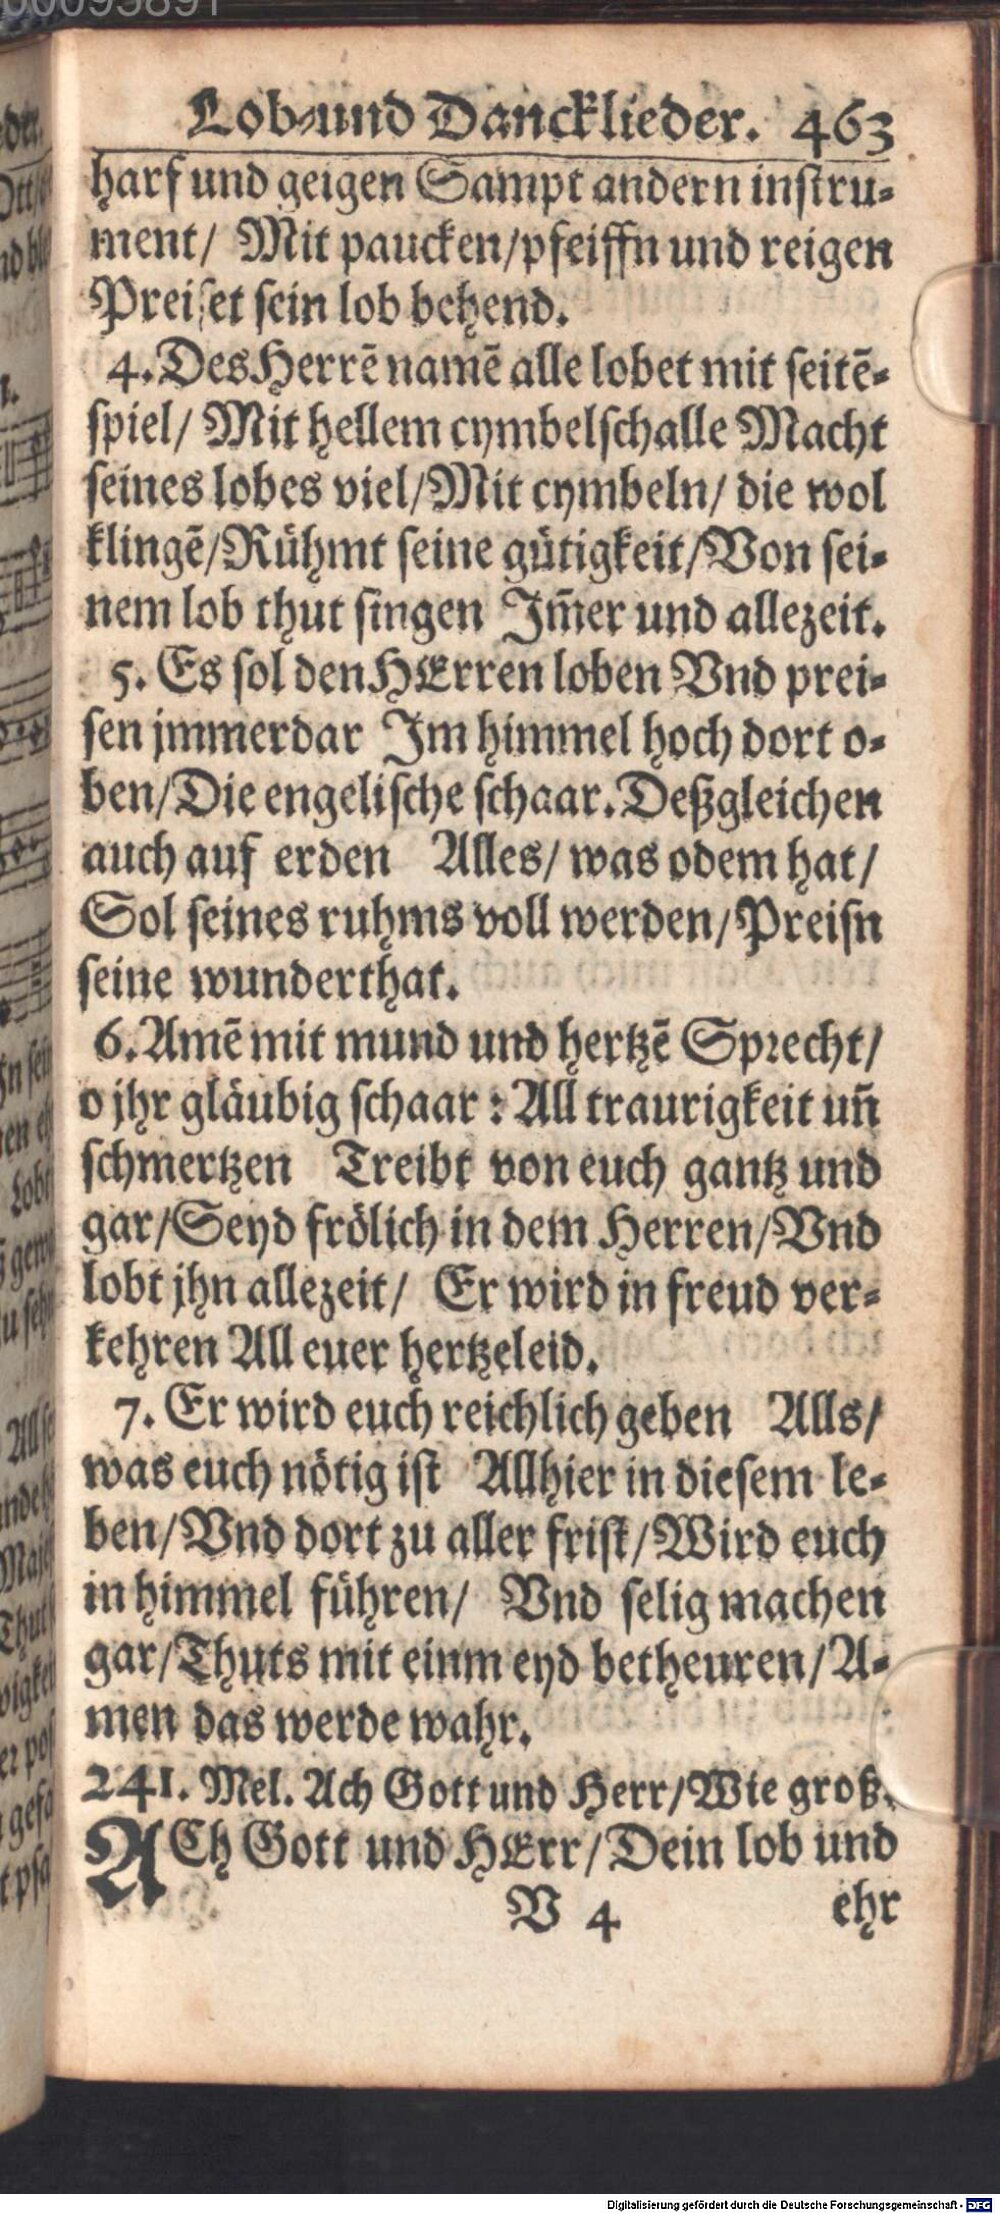 Lob-und Dancklieder. 463
harf und geigen Sampt andern instru-
ment/ Mit paucken/pfeiffn und reigen
Preiset sein lob behend.
4. Des Herrē namē alle lobet mit seitē-
spiel/ Mit hellem cymbelschalle Macht
seines lobes viel/Mit cymbeln/ die wol
klingē/Rühmt seine gütigkeit/Von sei-
nem lob thut singen Im̄er und allezeit.
5. Es sol den HErren loben Vnd prei-
sen jmmerdar Im himmel hoch dort o-
ben/Die engelische schaar. Deßgleichen
auch auf erden Alles/ was odem hat/
Sol seines ruhms voll werden/Preisn
seine wunderthat.
6. Amē mit mund und hertzē Sprecht/
o jhr gläubig schaar: All traurigkeit uñ
schmertzen Treibt von euch gantz und
gar/Seyd frölich in dem Herren/Vnd
lobt jhn allezeit/ Er wird in freud ver-
kehren All euer hertzeleid.
7. Er wird euch reichlich geben Alls/
was euch nötig ist Allhier in diesem le-
ben/Vnd dort zu aller frist/Wird euch
in himmel führen/ Vnd selig machen
gar/Thuts mit einm eyd betheuren/A-
men das werde wahr.
241. Mel. Ach Gott und Herr/Wie groß.
ACh Gott und HErr/Dein lob und
V 4 ehr
Digitalisierung gefördert durch die Deutsche Forschungsgemeinschaft - DFG